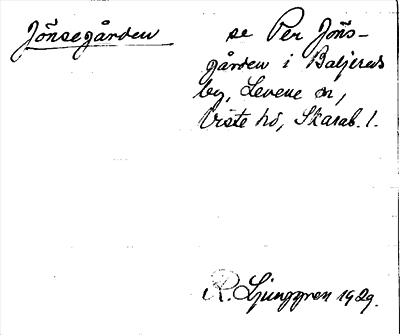 Jönsegården
se Per Jöns-
gården i Baljereds
by, Levene sn,
Viste hd, Skarab. l.
R. Ljunggren 1929.